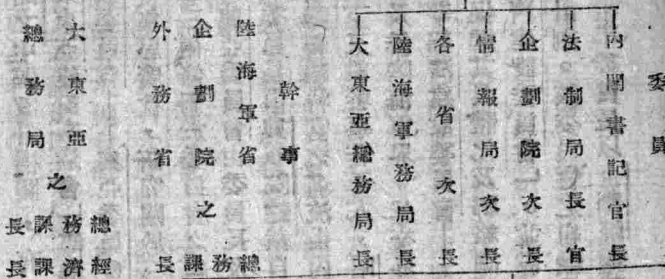 委員
內閣書記官長
法制局長官
企劃院次長
情報局次長
各省次長
陸海軍務局長
大東亞總務局長
幹事
陸海軍省
企劃院之
外務省
總務課長
大東亞
總務局之
總務課長
經濟課長